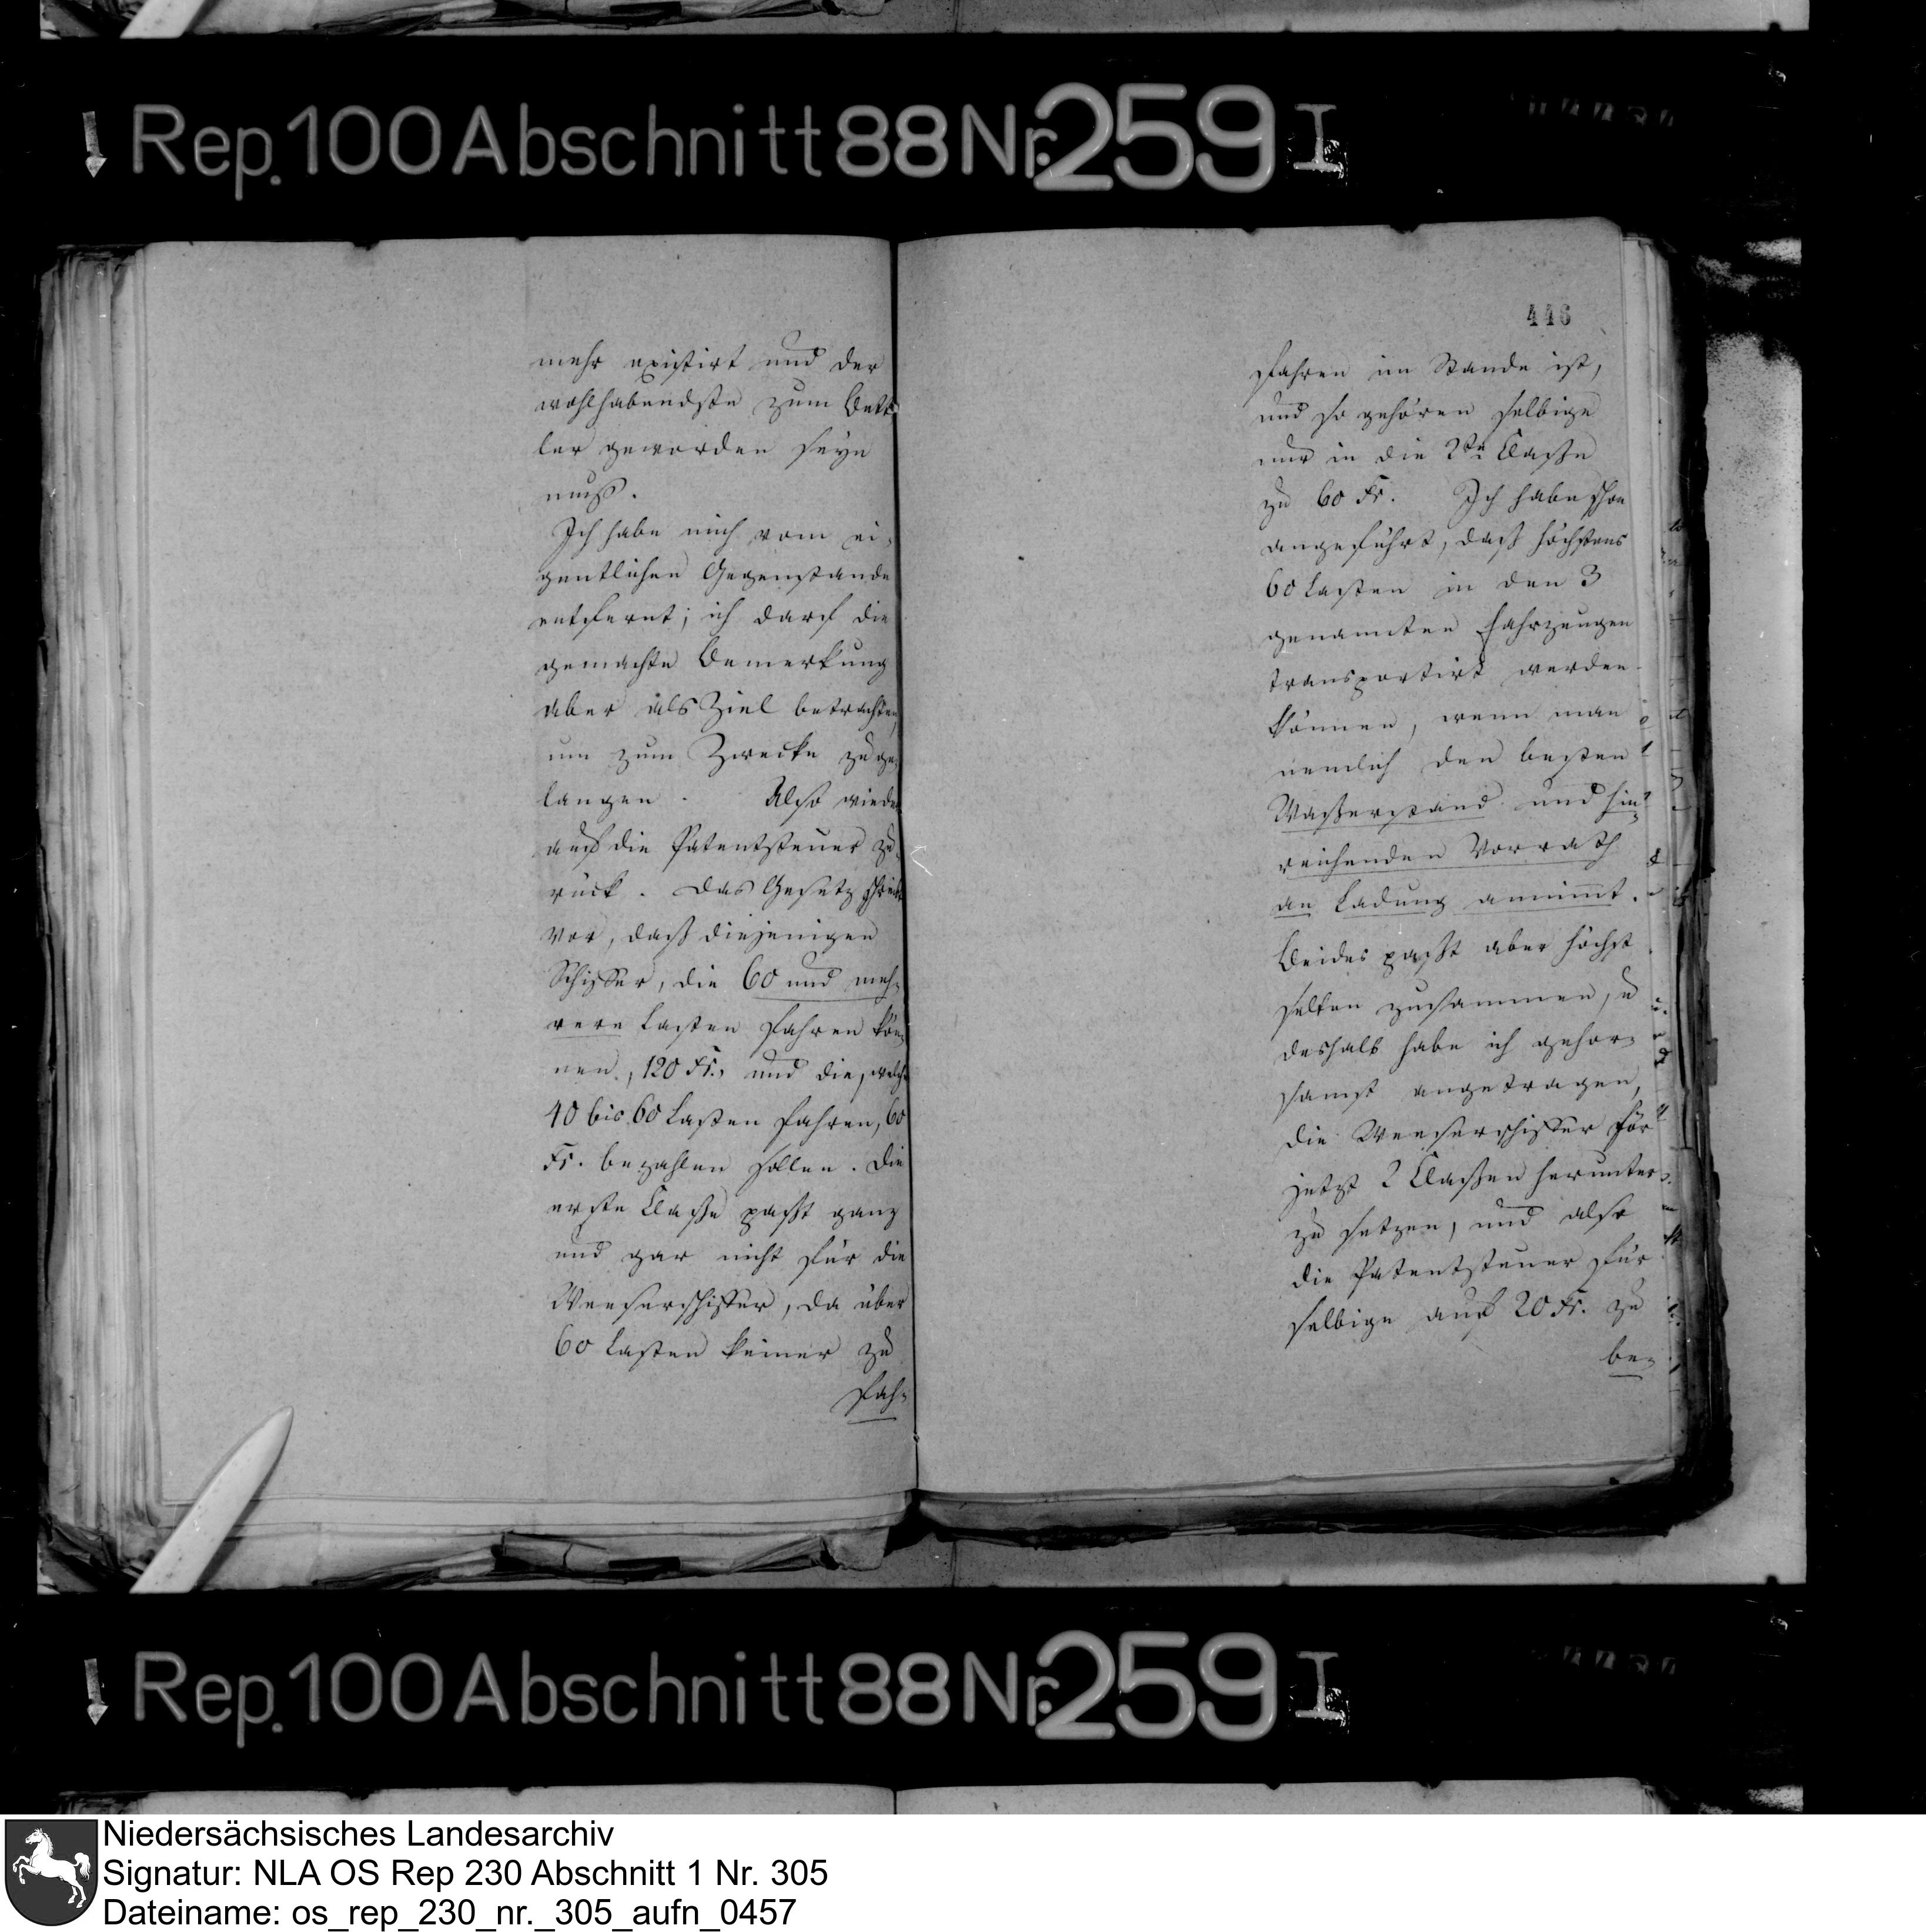 Rep. 100 Abschnitt 88 Nr. 259 I
mehr existirt und der
wohlhabendste zum Bett¬
ler geworden seyn
muß.
Ich habe mich vom ei¬
gentlichen Gegenstande
entfernt; ich darf die
gemachte Bemerkung
aber als Ziel betrachten,
um zum Zwecke zu ge¬
langen. Also wieder
auf die Patentsteuer zu¬
rück. Das Gesetz schreibt
vor, daß diejenigen
Schiffer, die 60 und meh¬
rere Lasten fahren kön¬
nen, 120 Fr., und die, welche
40 bis 60 Lasten fahren, 60
Fr. bezahlen sollen. Die
erste Claße paßt ganz
und gar nicht für die
Weeserschiffer, da über
60 Lasten keiner zu
fah¬
446
fahren im Stande ist,
und so gehören selbige
nur in die 2te Claße
zu 60 Fr. Ich habe schon
angeführt, daß höchstens
60 Lasten in den 3
genannten Fahrzeugen
transportirt werden
können, wenn man
nemlich den besten
Waßerstand und hin¬
reichenden Vorrath
an Ladung annimmt.
Beides paßt aber höchst
selten zusammen, u
deshalb habe ich gehor¬
samst angetragen,
die Weeserschiffer für
jetzt 2 Claßen herunter
zu setzen, und also
die Patentsteuer für
selbige auf 20 Fr. zu
be¬
Rep. 100 Abschnitt 88 Nr. 259 I
Niedersächsisches Landesarchiv
Signatur: NLA OS Rep 230 Abschnitt 1 Nr. 305
Dateiname: os_rep_230_nr._305_aufn_0457